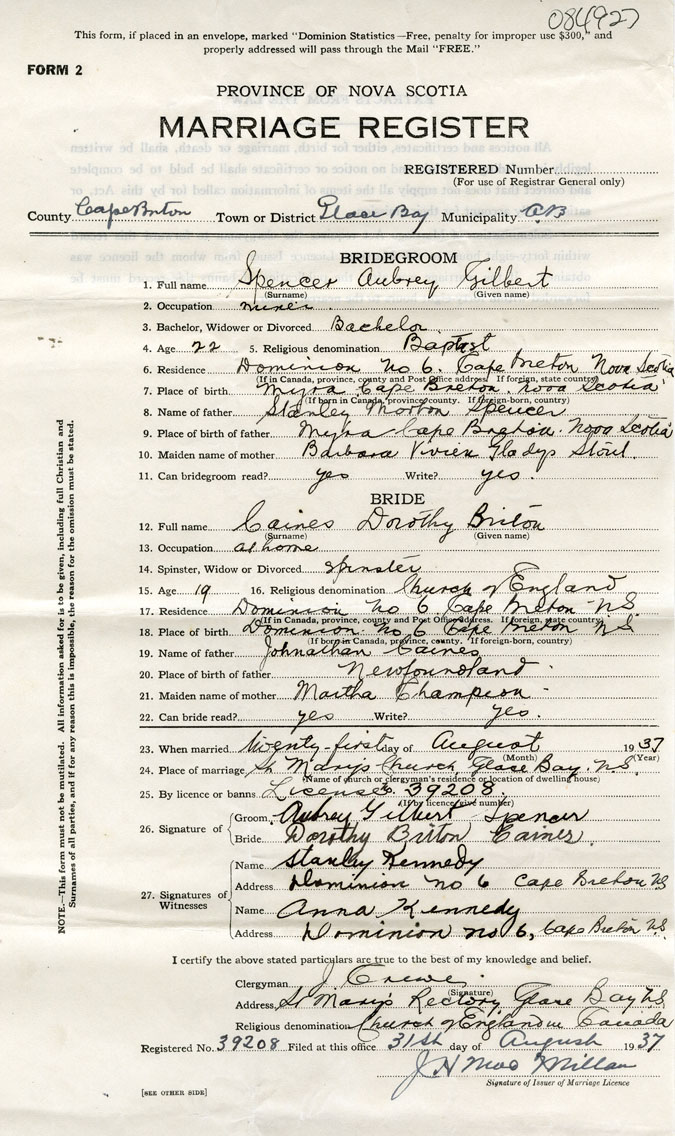 084927
This form, if placed in an envelope, marked "Dominion Statistics—Free, penalty for improper use $300," and
properly addressed will pass through the Mail "FREE."
FORM 2
PROVINCE OF NOVA SCOTIA
MARRIAGE REGISTER
REGISTERED Number
(For use of Registrar General only)
County Cape Breton Town or District Glace Bay Municipality C.B
BRIDEGROOM
1. Full name Spencer Aubrey Gilbert
(Surname) (Given name)
2. Occupation miner
3. Bachelor, Widower or Divorced Bachelor
4. Age 22 5. Religious denomination Baptist
6. Residence Dominion No 6. Cape Breton Nova Scotia
(If in Canada, province, county and Post Office address. If foreign, state country)
7. Place of birth Myra Cape Breton. Nova Scotia
(If born in Canada, province, county. If foreign-born, country)
8. Name of father Stanley Morton Spencer
9. Place of birth of father Myra Cape Breton. Nova Scotia
10. Maiden name of mother Barbara Vivien Gladys Stout.
11. Can bridegroom read? yes Write? yes.
BRIDE
12. Full name Caines Dorothy Briton
(Surname) (Given name)
13. Occupation at home
14. Spinster, Widow or Divorced spinster
15. Age 19 16. Religious denomination Church of England
17. Residence Dominion No 6 Cape Breton N.S.
(If in Canada, province, county and Post Office address. If foreign, state country)
18. Place of birth Dominion No 6 Cape Breton N S
(If born in Canada, province, county. If foreign-born, country)
19. Name of father Johnathan Caines
20. Place of birth of father Newfoundland
21. Maiden name of mother Martha Champion -
22. Can bride read? yes Write? yes.
23. When married twenty-first day of August 1937
(Month) (Year)
24. Place of marriage St Mary's Church, Glace Bay, N.S.
(Name of church or clergyman's residence or location of dwelling house)
25. By licence or banns License 39208
(If by licence, give number)
26. Signature of
Groom Aubrey Gilbert Spencer
Bride Dorothy Briton Caines
27. Signatures of Witnesses
Name Stanley Kennedy
Address Dominion No 6 Cape Breton NS
Name Anna Kennedy
Address Dominion No 6, Cape Breton N.S.
I certify the above stated particulars are true to the best of my knowledge and belief.
Clergyman J Crewe.
(Signature)
Address St Mary's Rectory, Glace Bay N.S.
Religious denomination Church of England in Canada
Registered No. 39208 Filed at this office 31st day of August 1937
J H Mac Millan
Signature of Issuer of Marriage Licence
[SEE OTHER SIDE]
NOTE.—This form must not be mutilated. All information asked for is to be given, including full Christian and
Surnames of all parties, and if for any reason this is impossible, the reason for the omission must be stated.